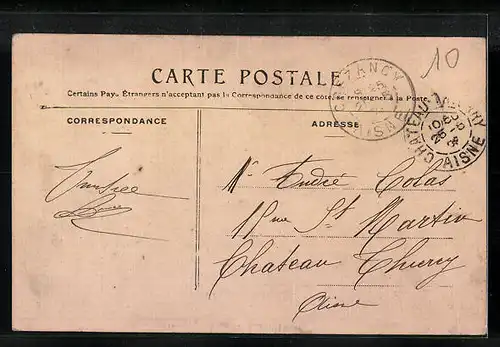 10
CARTE POSTALE
Certains Pays Étrangers n'acceptant pas la Correspondance de ce côté, se renseigner à la Poste
CORRESPONDANCE
ADRESSE
CREZANCY
AISNE
CHATEAU-THIERRY
AISNE
Mr André Colas
Rue St Martin
Chateau Thierry
Aisne